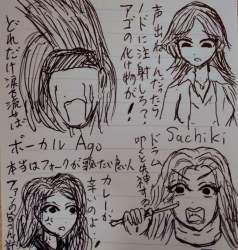 声出ねーんだったら
ノドに注射しろ?!
アゴの化け物が!
どれだけ涙を流せば
ボーカル Ago
本当はフォークが歌いたい良い人
Sachiki
ドラム
叩くと失神する
カレーが
辛いのよー!
ファン